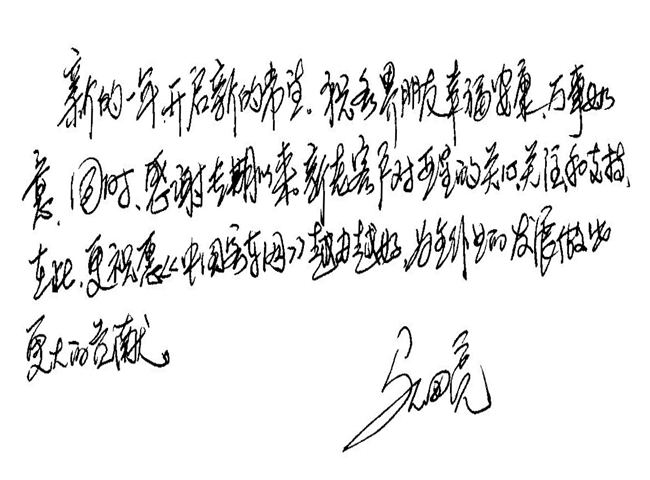 新的一年开启新的希望,祝各界朋友幸福安康,万事如
意,同时,感谢长期以来新老客户对亚星的关心,关注和支持,
在此,更祝愿《中国客车网》越办越好,为全行业的发展做出
更大的贡献。